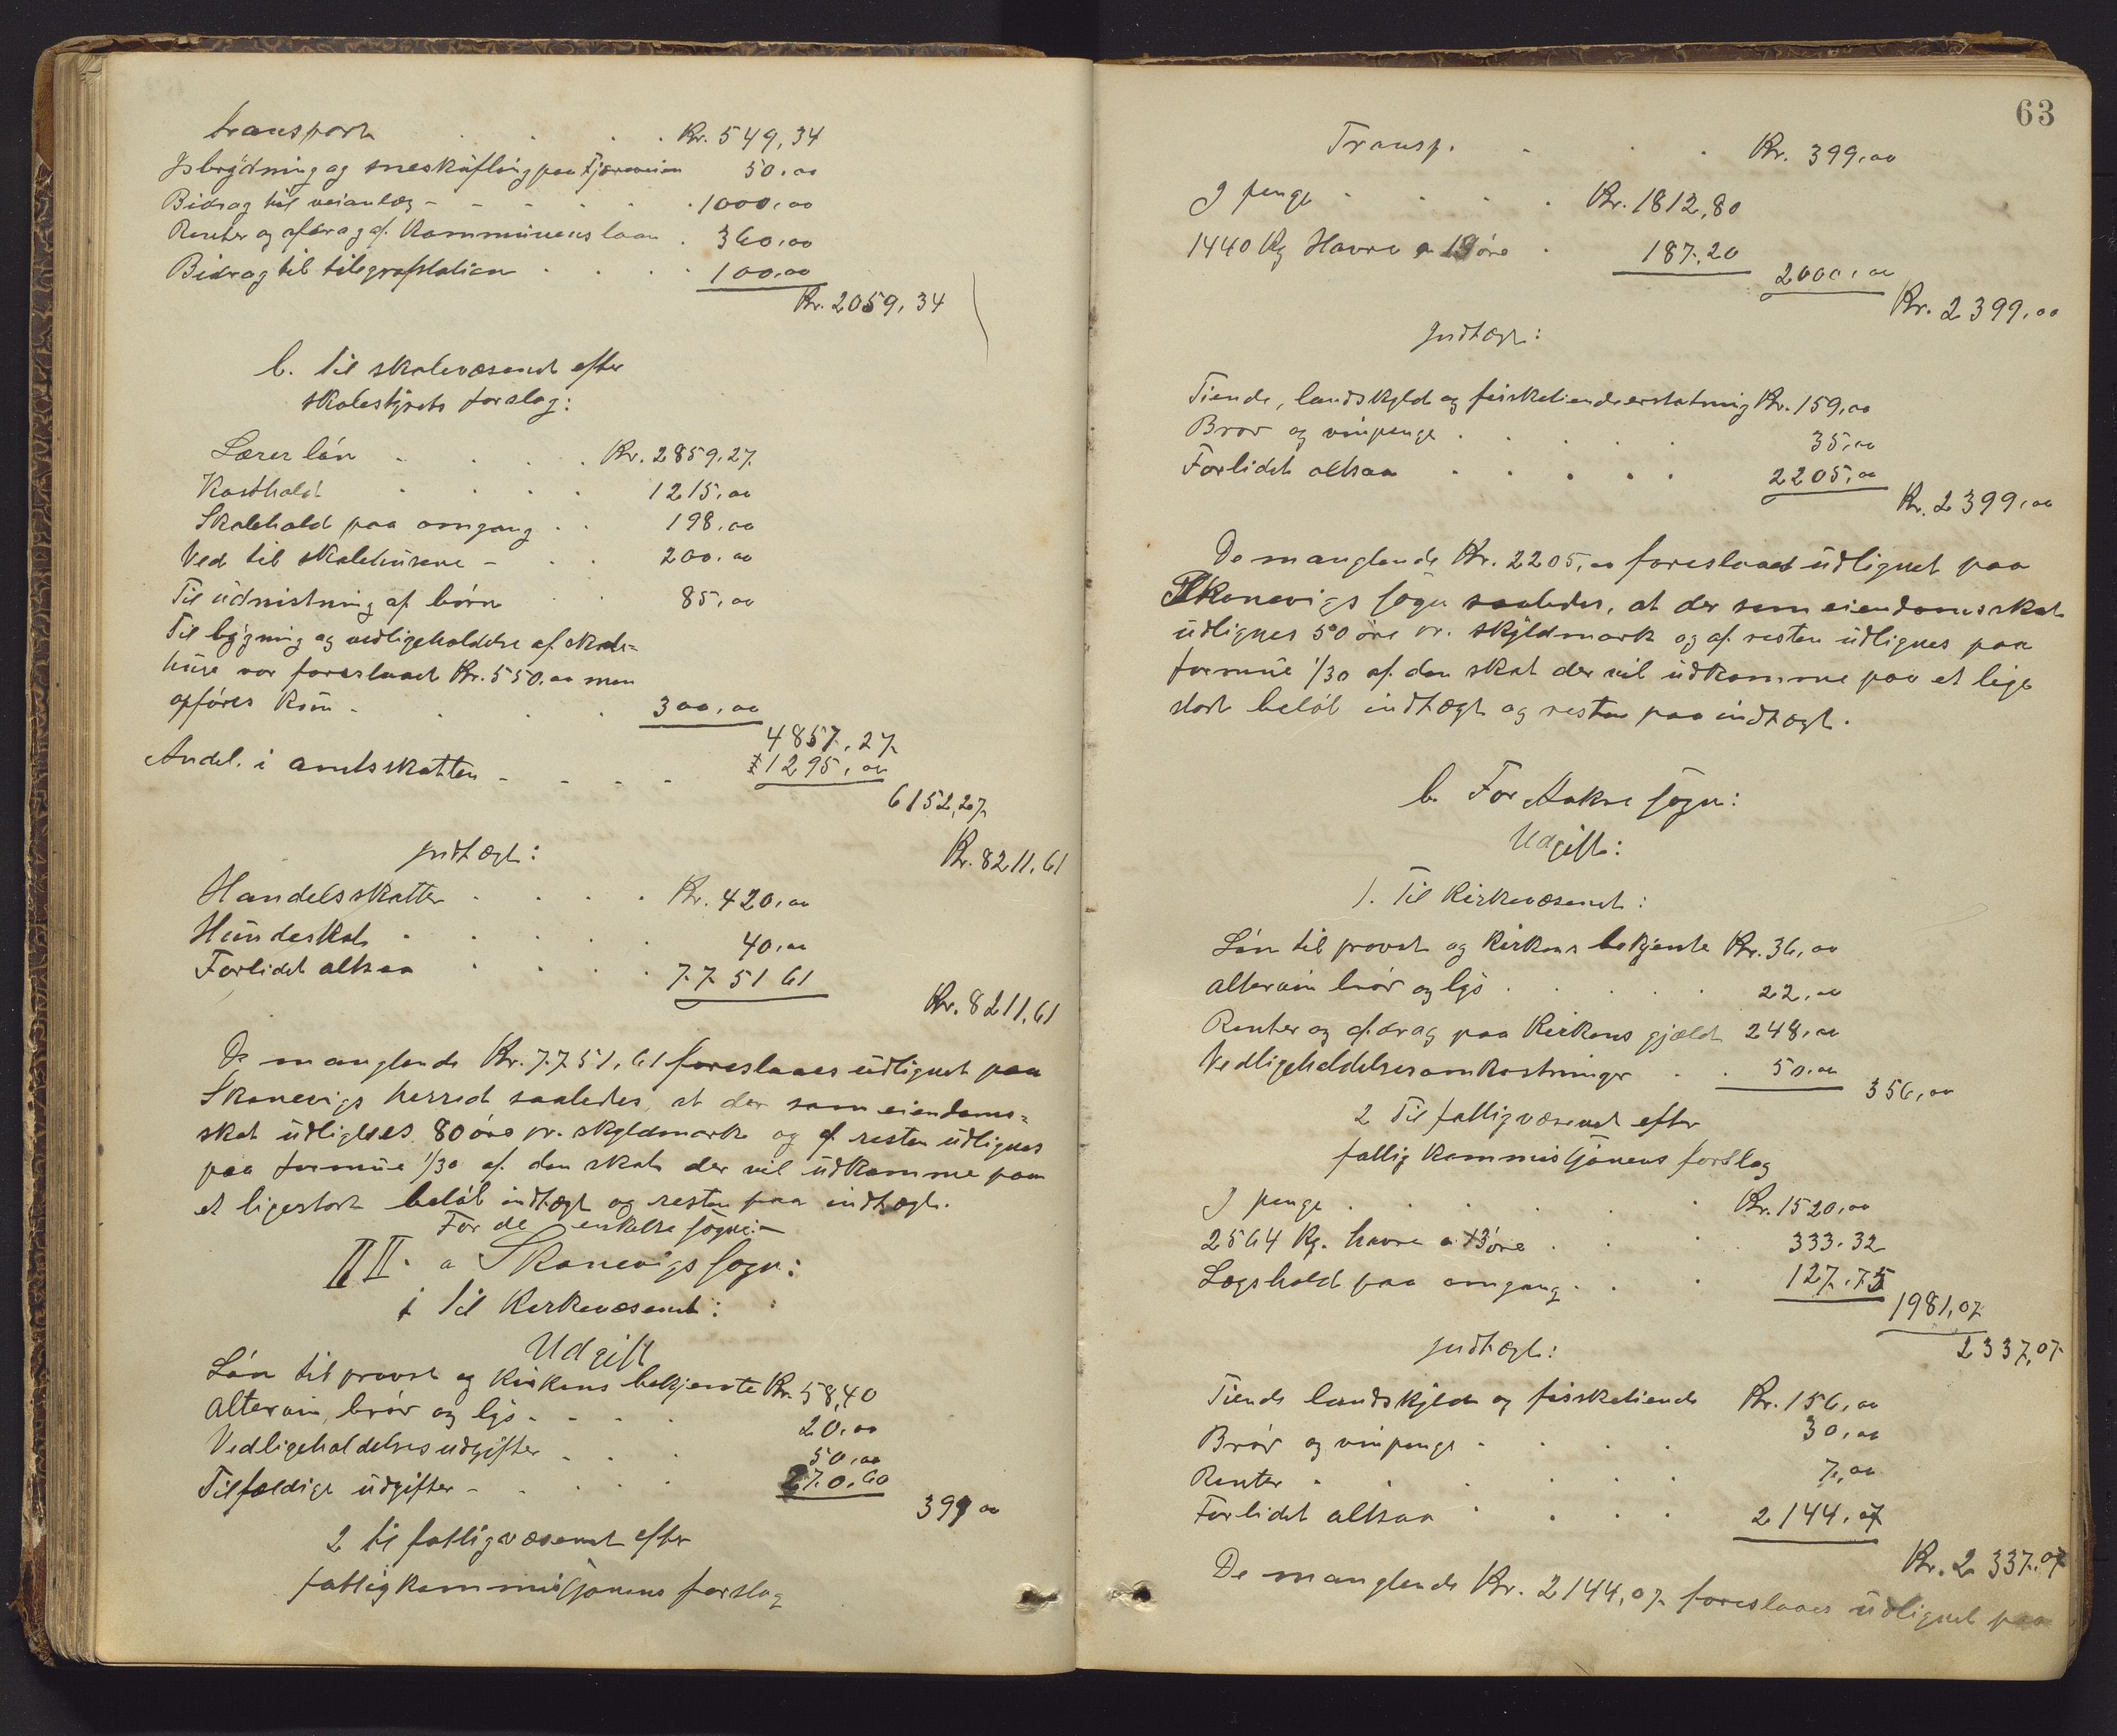 transport . . . . Kr. 549,34
Isbrydning og sneskufling paa Fjæreveien 50,00
Bidrag til veianlæg - - - . . . 1000,00
Renter og afdrag af Kommunens laan . 360,00
Bidrag til telegrafstation . . . . 100,00
Kr. 2059,34
b. Til skolevæsenet efter
skolestyrets forslag:
Lærerløn . . . . Kr. 2859,27
Kosthold . . . . 1215,00
Skolehold paa omgang . . 198,00
Ved til skolehusene - . . 200,00
Til udnistning af børn . . 85,00
Til bygning og vedligeholdelse af skole=
huse var foreslaaet Kr. 550,00 men
opføres kun - . . . 300,00
4857,27
Andel i amtsskatten - - - - 1295,00
6152,27
Kr. 8211,61
Indtægt:
Handelsskatter . . . . Kr. 420,00
Hundeskat . . . . . 40,00
Forlidet altsaa . . . . 7751 61
Kr. 8211,61
De manglende Kr. 7751,61 foreslaaes udlignet paa
Skonevigs herred saaledes, at der som eiendoms=
skat udlignes 80 øre pr. skyldmark og af resten udlignes
paa formue 1/30 af den skat der vil udkomme paa
et ligestort beløb indtægt og resten paa indtægt.
For de enkelte sogne:
II. a Skonevigs sogn:
1 Til Kirkevæsenet:
Udgift
Løn til provst og kirkens betjente Kr. 58,40
Altervin, brød og lys - - - - 20,00
Vedligeholdelsesudgifter - . . 50,00
Tilfældige udgifter - . . . . 270,60
399 00
2 til fattigvæsenet efter
fattigkommisjonens forslag
63
Transp. . . . Kr. 399,00
I penge . . . . Kr. 1812,80
1440 Kg Havre a 13 øre . 187,20
2000,00
Kr. 2399,00
Indtægt:
Tiende, landskyld og fisketiendeerstatning Kr. 159,00
Brød og vinpenge . . . . . 35,00
Forlidet altsaa . . . . . 2205,00
Kr. 2399,00
De manglende Kr. 2205,00 foreslaaes udlignet paa
Skonevigs sogn saaledes, at der som eiendomsskat
udlignes 50 øre pr. skyldmark og af resten udlignes paa
formue 1/30 af den skat der vil udkomme paa et lige
stort beløb indtægt og resten paa indtægt.
b. For Aakre sogn:
Udgift:
1. Til Kirkevæsenet:
Løn til provst og kirkens betjente Kr. 36,00
altervin brød og lys . . . . . 22,00
Renter og afdrag paa Kirkens gjæld 248,00
Vedligeholdelsesomkostninger . . 50,00
356,00
2 Til fattigvæsenet efter
fattig kommisjonens forslag
I penge . . . . . Kr. 1520,00
2564 Kg. havre a 13 øre . . . 333.32
Lægshold paa omgang . . . 127.75
1981,07
2337,07
Indtægt:
Tiende landskyld og fisketiende Kr. 156,00
Brød og vinpenge . . . . 30,00
Renter . . . . . . 7,00
Forlidet altsaa . . . . 2144,07
Kr. 2337,07
De manglende Kr. 2144,07 foreslaaes udlignet paa